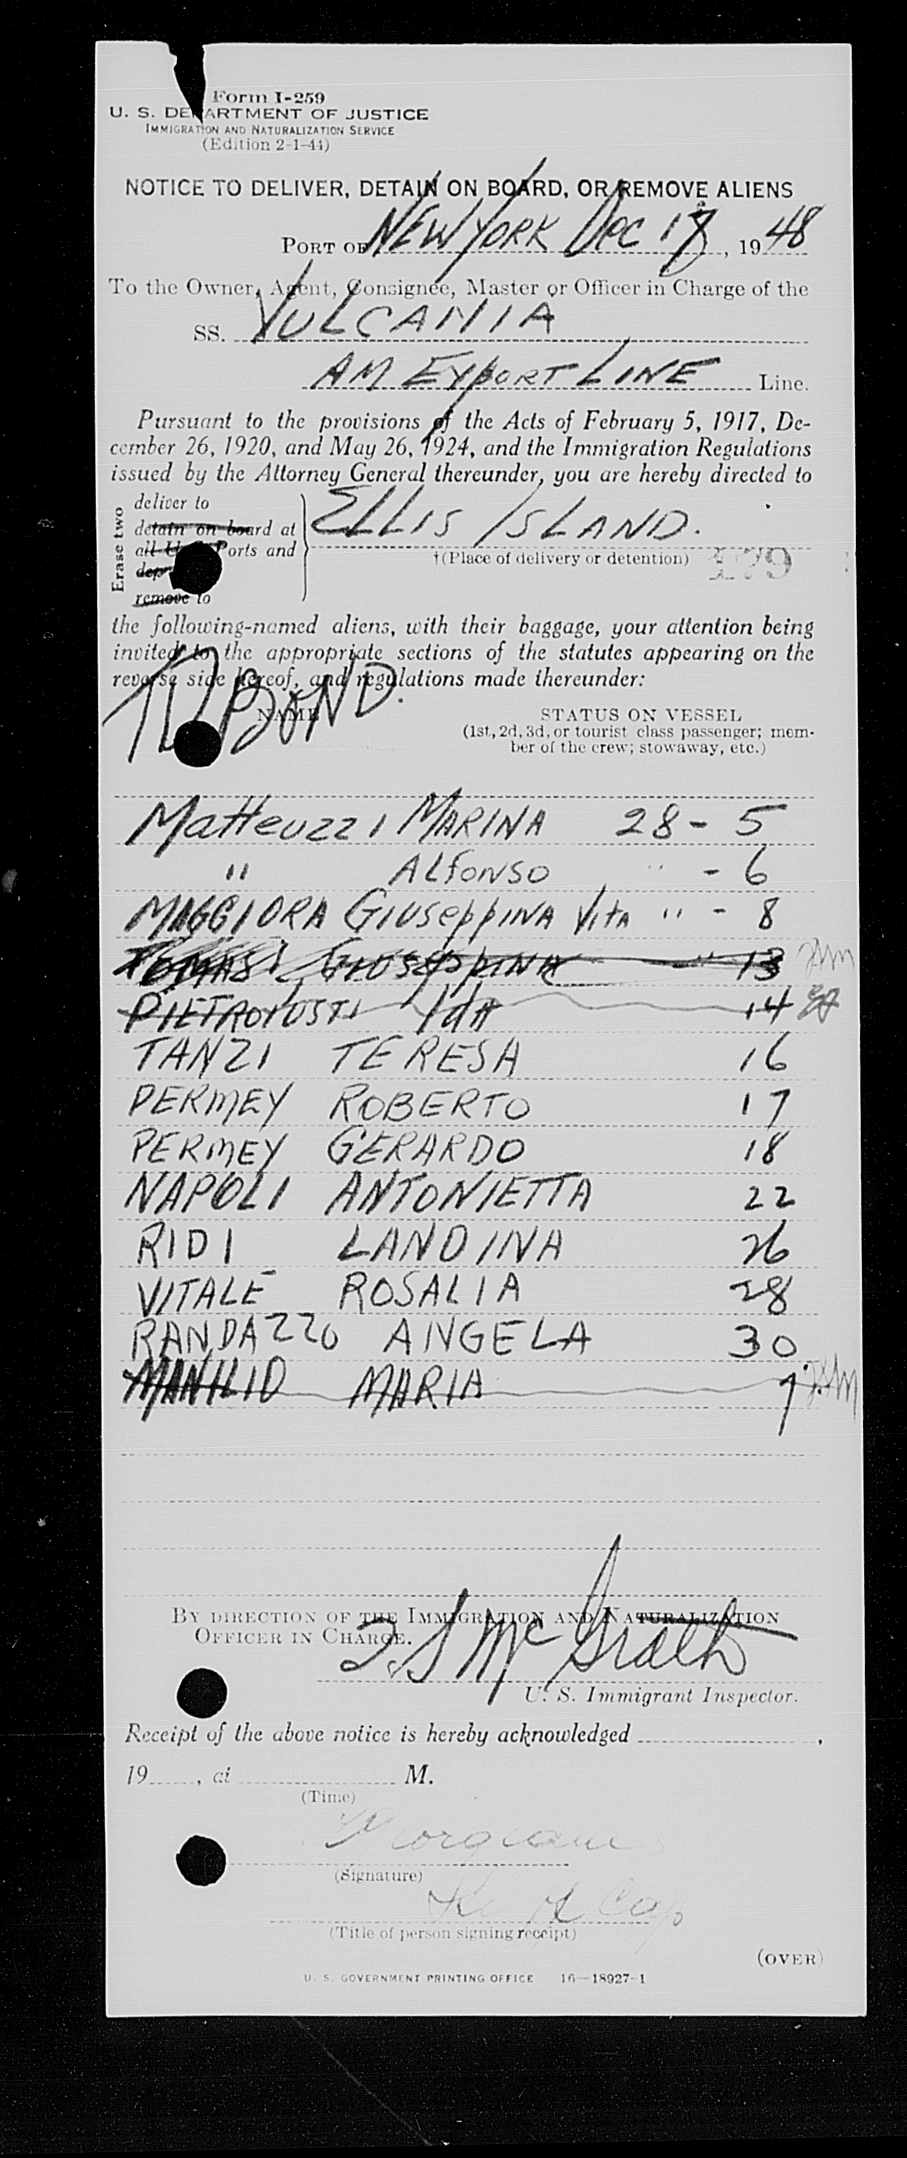 Form I-259
U. S. DEPARTMENT OF JUSTICE
IMMIGRATION AND NATURALIZATION SERVICE
(Edition 2-1-44)
NOTICE TO DELIVER, DETAIN ON BOARD, OR REMOVE ALIENS
PORT OF NEW YORK DEC 18, 1948
To the Owner, Agent, Consignee, Master or Officer in Charge of the
SS. VULCANIA
AM EXPORT LINE Line.
Pursuant to the provisions of the Acts of February 5, 1917, De-
cember 26, 1920, and May 26, 1924, and the Immigration Regulations
issued by the Attorney General thereunder, you are hereby directed to
Erase two
deliver to
detain on board at
all U. S. Ports and
remove to
ELLIS ISLAND.
†(Place of delivery or detention)
the following-named aliens, with their baggage, your attention being
invited to the appropriate sections of the statutes appearing on the
reverse side hereof, and regulations made thereunder:
BOND.
NAME
STATUS ON VESSEL
(1st, 2d, 3d, or tourist class passenger; mem-
ber of the crew; stowaway, etc.)
Matteuzzi MARINA 28 - 5
" ALFONSO " - 6
MAGGIORA GIUSEPPINA Vita " - 8
TOMASI GIUSEPPINA " 13
PIETROIUSTI IdA 14
TANZI TERESA 16
PERMEY ROBERTO 17
PERMEY GERARDO 18
NAPOLI ANTONIETTA 22
RIDI LANDINA 26
VITALE ROSALIA 28
RANDAZZO ANGELA 30
MANILIO MARIA 7
BY DIRECTION OF THE IMMIGRATION AND NATURALIZATION
OFFICER IN CHARGE.
McGrath
U. S. Immigrant Inspector.
Receipt of the above notice is hereby acknowledged ,
19 , at M.
(Time)
(Signature)
(Title of person signing receipt)
(OVER)
U. S. GOVERNMENT PRINTING OFFICE 16—18927-1